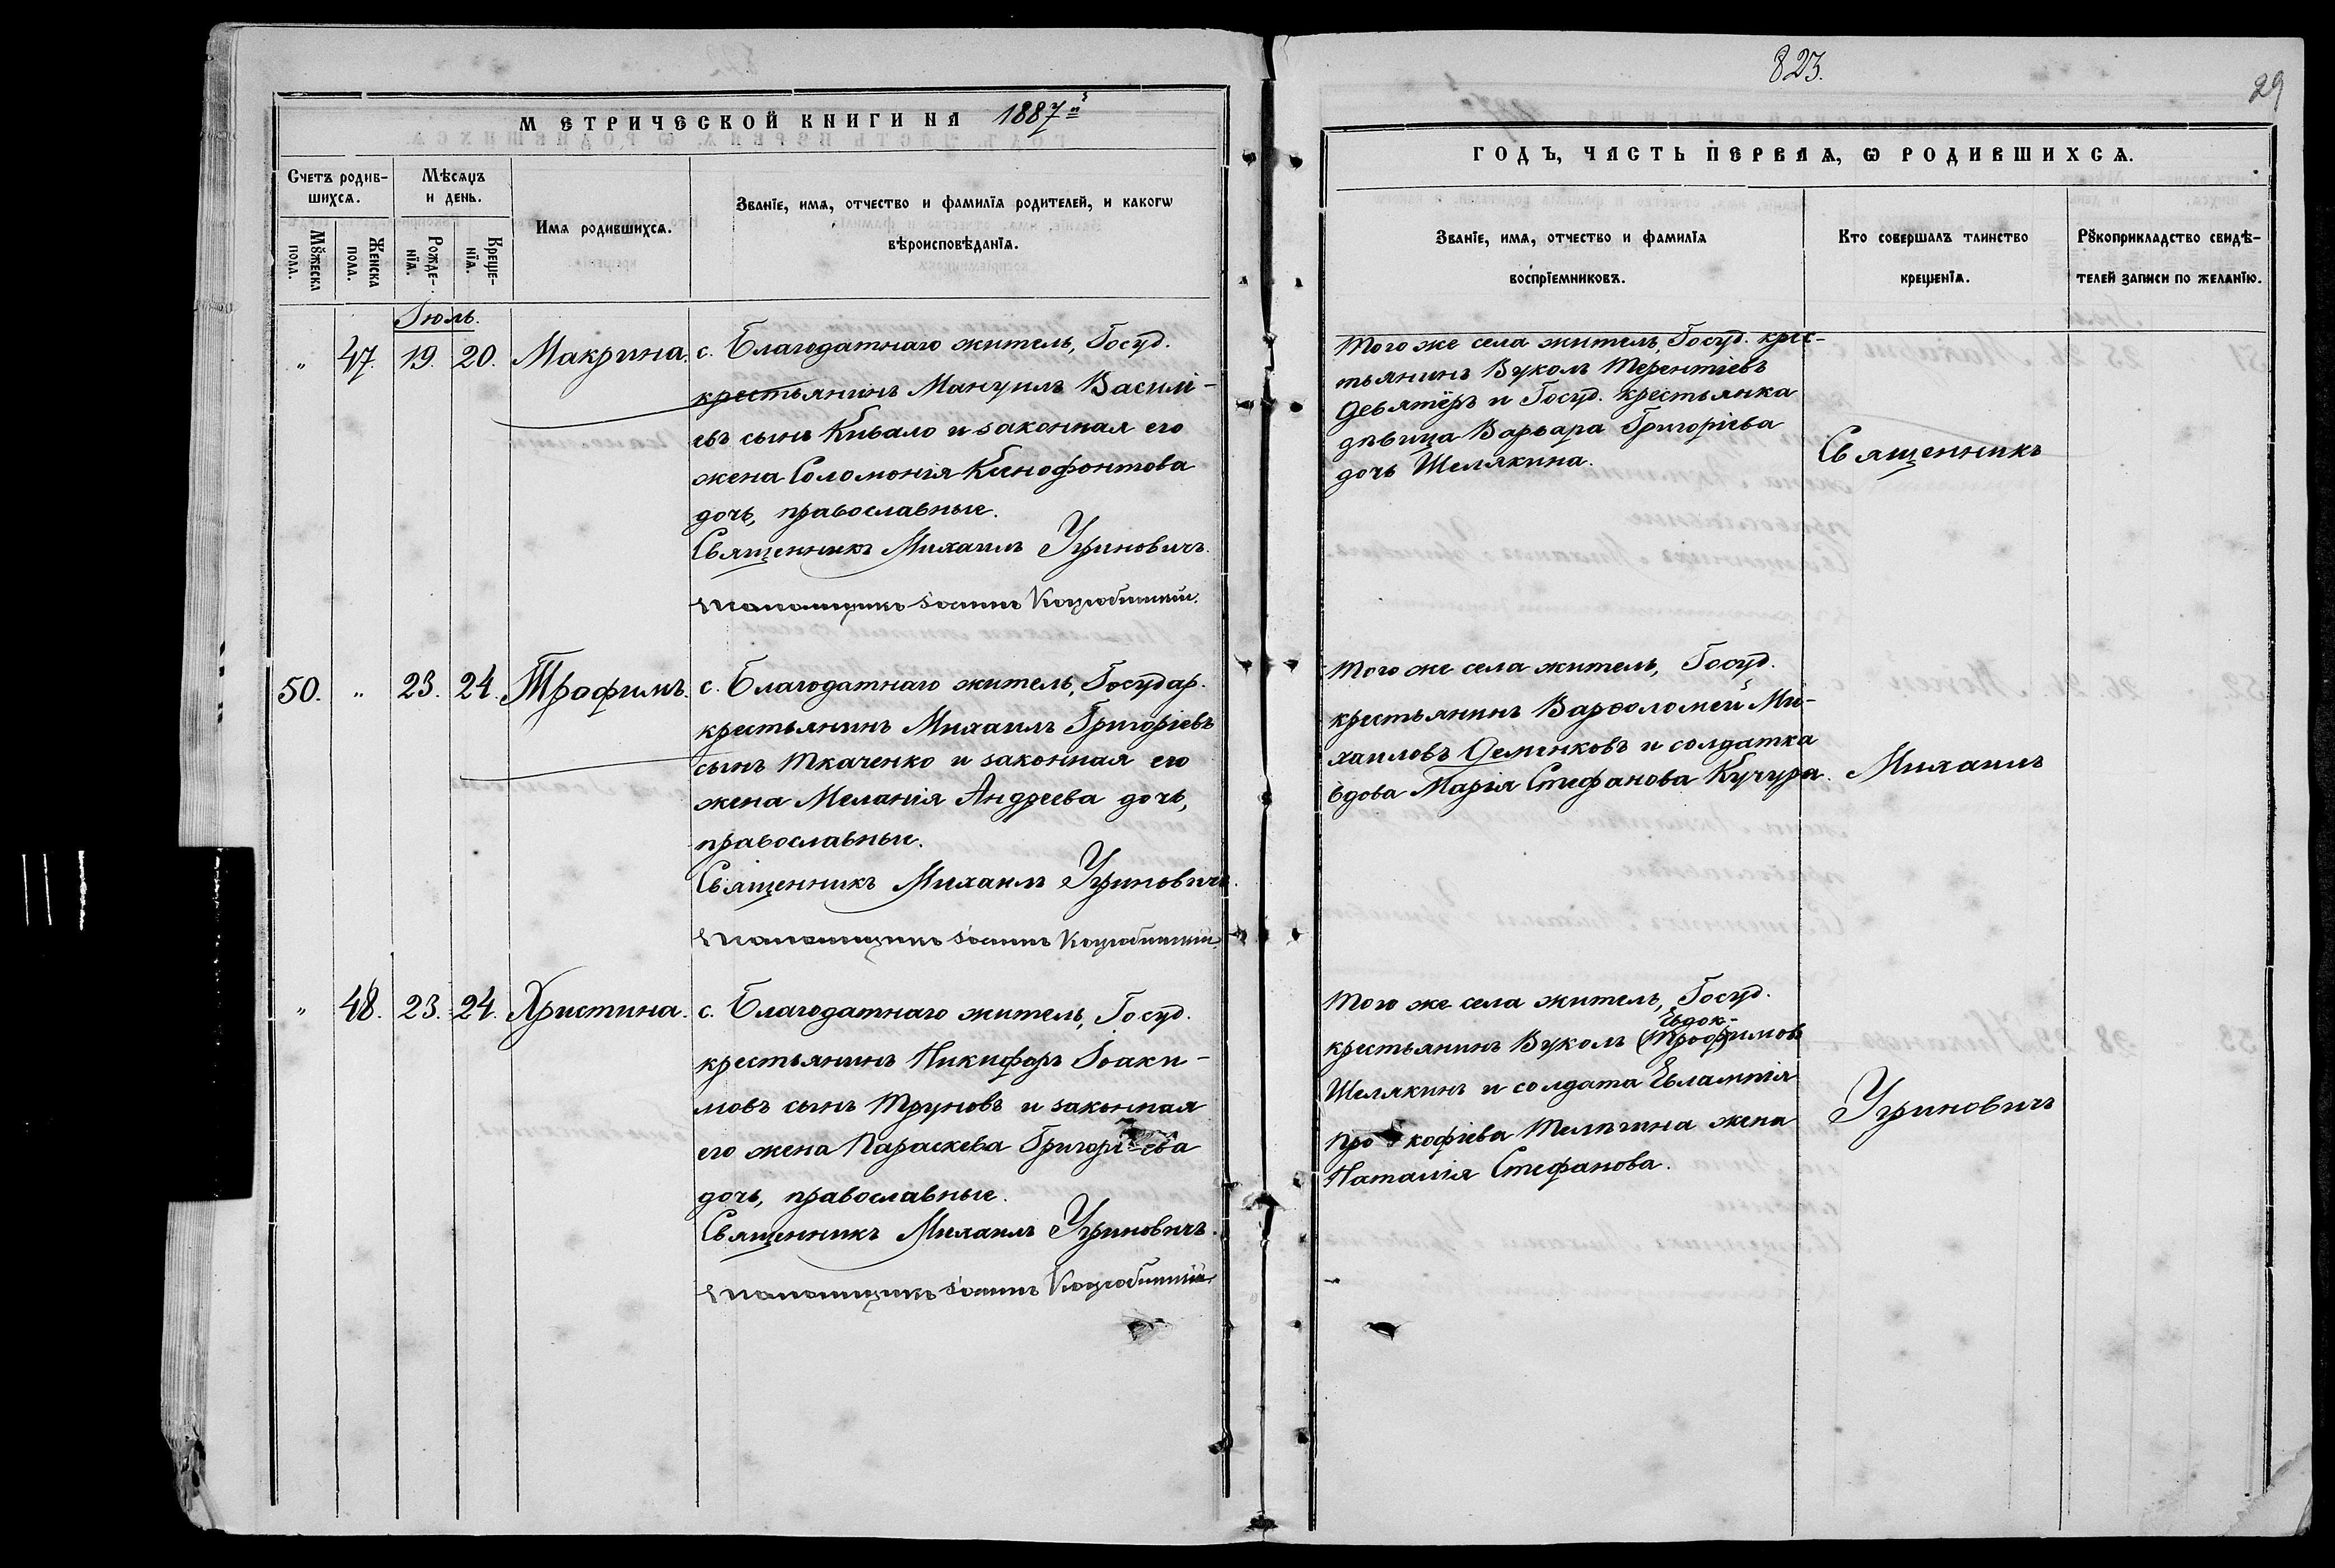 823.
29
МЕТРИЧЕСКОЙ КНИГИ НА 1887й
Счетъ родив-
шихся.
Мѣсяцъ
и день.
Имя родившихся.
Званїе, имя, отчество и фамилїя родителей, и какогѡ
вѣроисповѣданїя.
Мꙋжеска
пола.
Женска
пола.
Рожде-
нїя.
Креще-
нїя.
Іюль.
" 47. 19. 20. Макрина.
с. Благодатнаго житель, Госуд.
крестьянинъ Мануилъ Василі-
евъ сынъ Кивало и законная его
жена Соломонія Ксенофонтова
дочь, православные.
Священникъ Михаилъ Угриновичъ.
Псаломщикъ Іоаннъ Коцюбинскій.
50. " 23. 24. Трофимъ.
с. Благодатнаго житель, Государ.
крестьянинъ Михаилъ Григоріевъ
сынъ Ткаченко и законная его
жена Меланія Андреева дочь,
православные.
Священникъ Михаилъ Угриновичъ.
Псаломщикъ Іоаннъ Коцюбинскій.
" 48. 23. 24. Христина.
с. Благодатнаго житель, Госуд.
крестьянинъ Никифоръ Іоаки-
мовъ сынъ Труновъ и законная
его жена Параскева Григорі-ева
дочь, православные.
Священникъ Михаилъ Угриновичъ.
Псаломщикъ Іоаннъ Коцюбинскій.
ГОДЪ, ЧАСТЬ ПЕРВАЯ, Ѡ РОДИВШИХСЯ.
Званїе, имя, отчество и фамилїя
воспрїемниковъ.
Кто совершалъ таинство
крещенїя.
Рꙋкоприкладство свидѣ-
телей записи по желанїю.
Того же села житель, Госуд. крес-
тьянинъ Вуколъ Терентіевъ
Девятёръ и Госуд. крестьянка
дѣвица Варвара Григоріева
дочь Шелякина.
Священникъ
Того же села житель, Госуд.
крестьянинъ Варѳоломей Ми-
хаиловъ Деменковъ и солдатка
вдова Марія Стефанова Кучура.
Михаилъ
Того же села житель, Госуд.
Евдок-
крестьянинъ Вуколъ (Троф)имовъ
Шелякинъ и солдата Евлампія
Про кофіева жена
Наталія Стефанова.
Угриновичъ